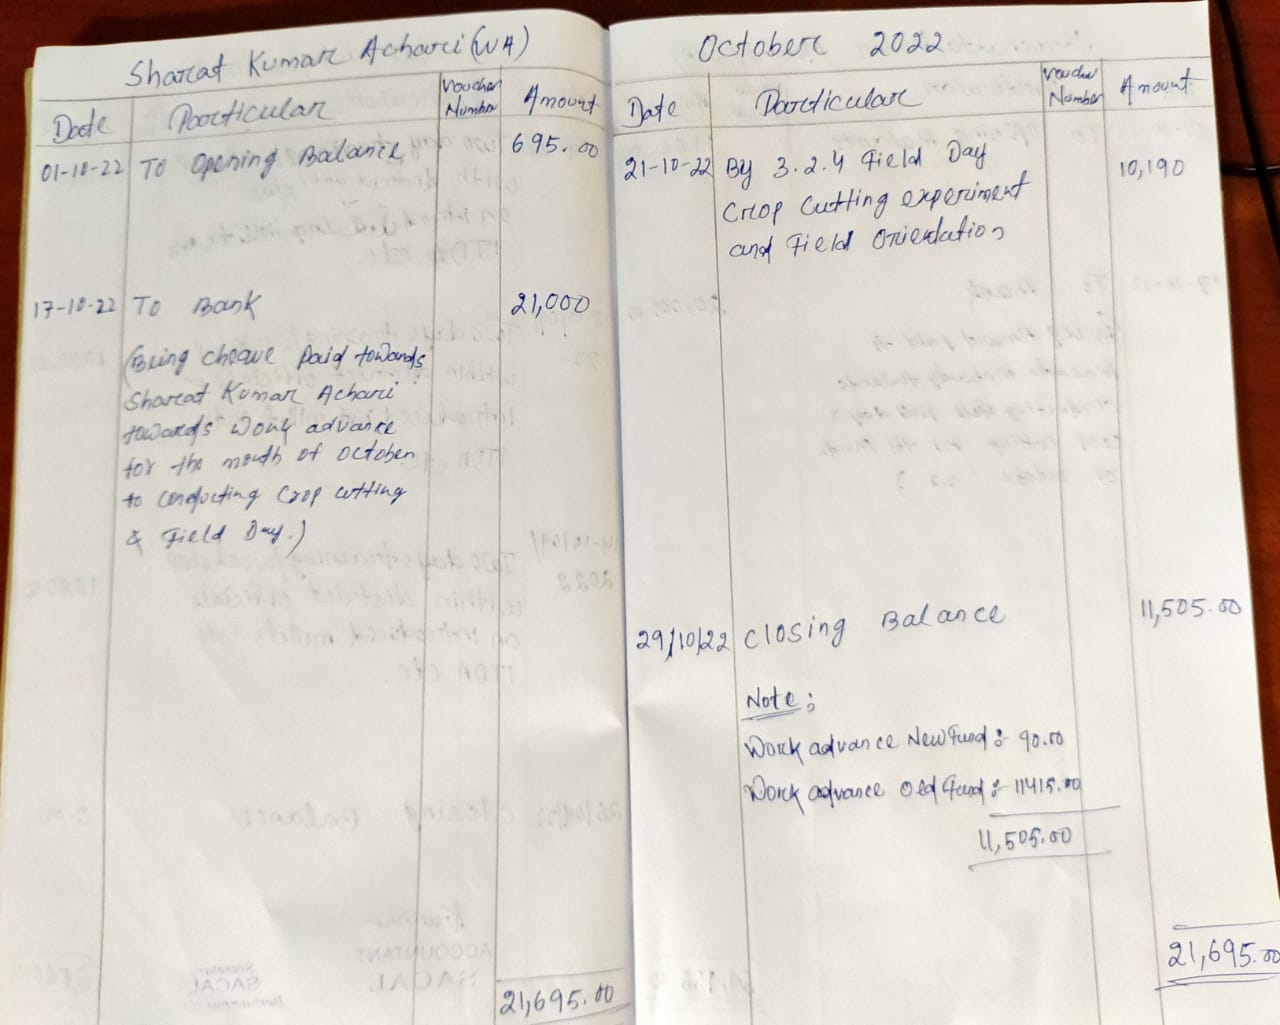 Sharat Kumar Achari (WA)
Date Particular Voucher Number Amount
01-10-22 To Opening Balance 695.00
17-10-22 To Bank 21,000
(Being cheque Paid towards
Sharat Kumar Achari
towards Work advance
for the month of October
to conducting Crop cutting
& Field Day.)
21,695.00
October 2022
Date Particular Voucher Number Amount
21-10-22 By 3.2.4 Field Day 10,190
Crop Cutting experiment
and Field Orientation
29/10/22 Closing Balance 11,505.00
Note :
Work advance New Fund :- 90.00
Work advance Old Fund :- 11415.00
11,505.00
21,695.00